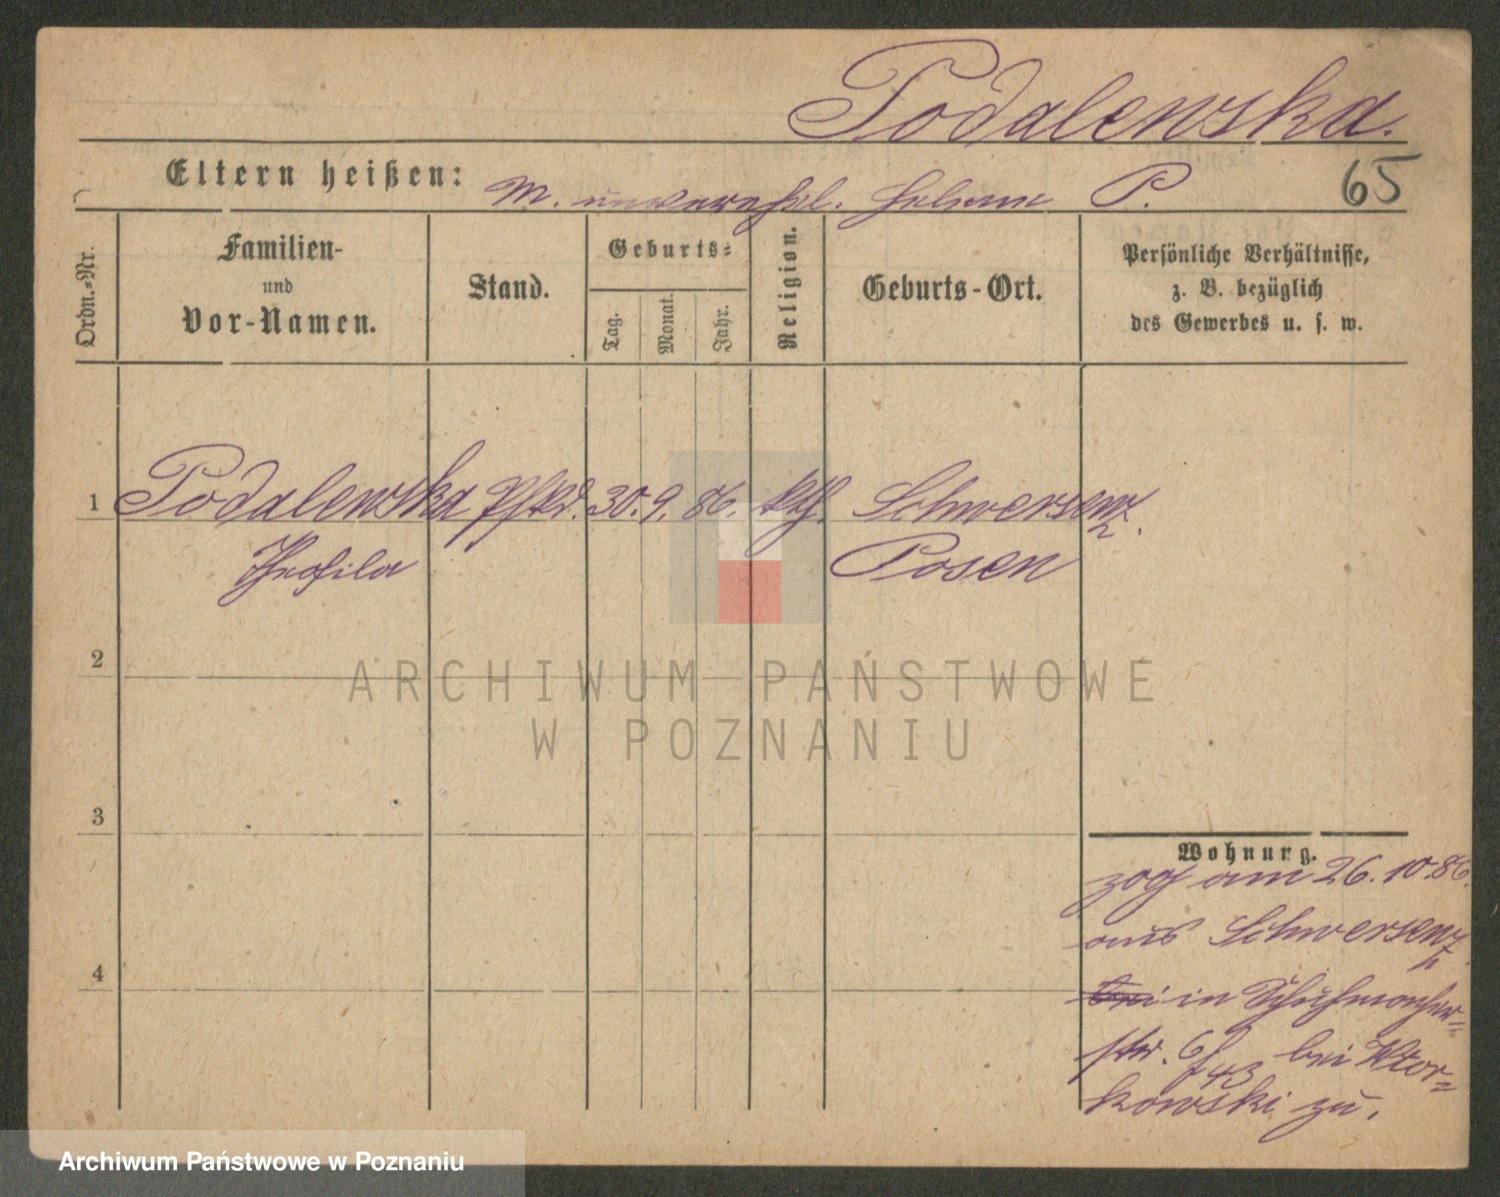 Podalewska.
Eltern heißen: M. unverehel. Helene P. 65
Ordn.-Nr.
Familien-
und
Vor-Namen.
Stand.
Geburts-
Tag.
Monat.
Jahr.
Religion.
Geburts-Ort.
Persönliche Verhältnisse,
z. B. bezüglich
des Gewerbes u. s. w.
1 Podalewska Pflkd. 30. 9. 86. kth. Schwersenz.
Theofila Posen
2
ARCHIWUM PAŃSTWOWE
W POZNANIU
3
Wohnung.
zog am 26. 10. 86.
aus Schwersenz
4
bei in Schuhmacher-
str. 6/43 bei Ktor-
kowski zu.
Archiwum Państwowe w Poznaniu